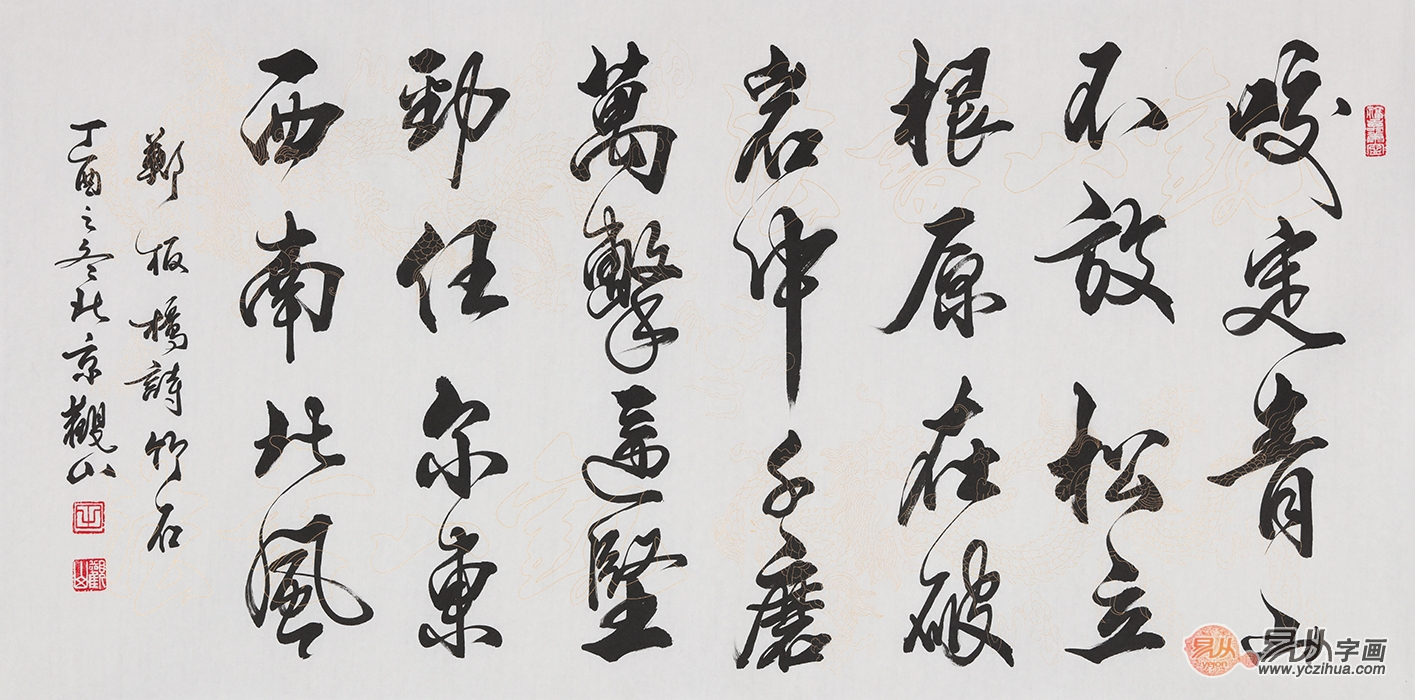 咬定青山
不放松立
根原在破
岩中千磨
萬擊還堅
勁任尔東
西南北風
鄭板橋詩竹石
丁酉之冬北京觀山
易从字画
www.yczihua.com